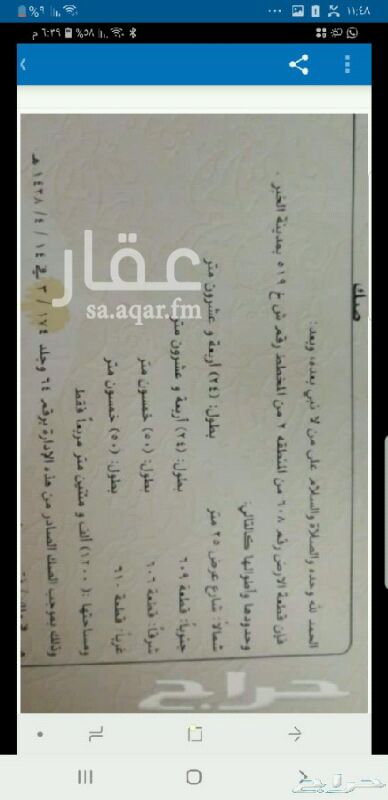 ١١:٤٨
%٩
٦:٣٩ م
%٥٨
صك
الحمد لله وحده والصلاة والسلام على من لا نبي بعده، وبعد:
فإن قطعة الارض رقم ٦٠٨ من المنطقه ٢ من المخطط رقم ش خ ٥١٩ بمدينة الخبر .
وحدودها وأطوالها كالتالي:
شمالا: شارع عرض ٢٥ متر بطول: (٢٤) أربعة و عشرون متر
جنوباً: قطعة ٦٠٩ بطول: (٢٤) أربعة و عشرون متر
شرقاً: قطعة ٦٠٦ بطول: (٥٠) خمسون متر
غرباً: قطعة ٦١٠ بطول: (٥٠) خمسون متر
ومساحتها :( ١٢٠٠) الف و متنين متر مربعاً فقط
وذلك بموجب الصك الصادر من هذه الإدارة برقم ٦٤ وجلد ١٧٤ / ٣ في ١٤ / ٤ / ١٤٣٨ هـ
عقار
sa.aqar.fm
حراج
حراج